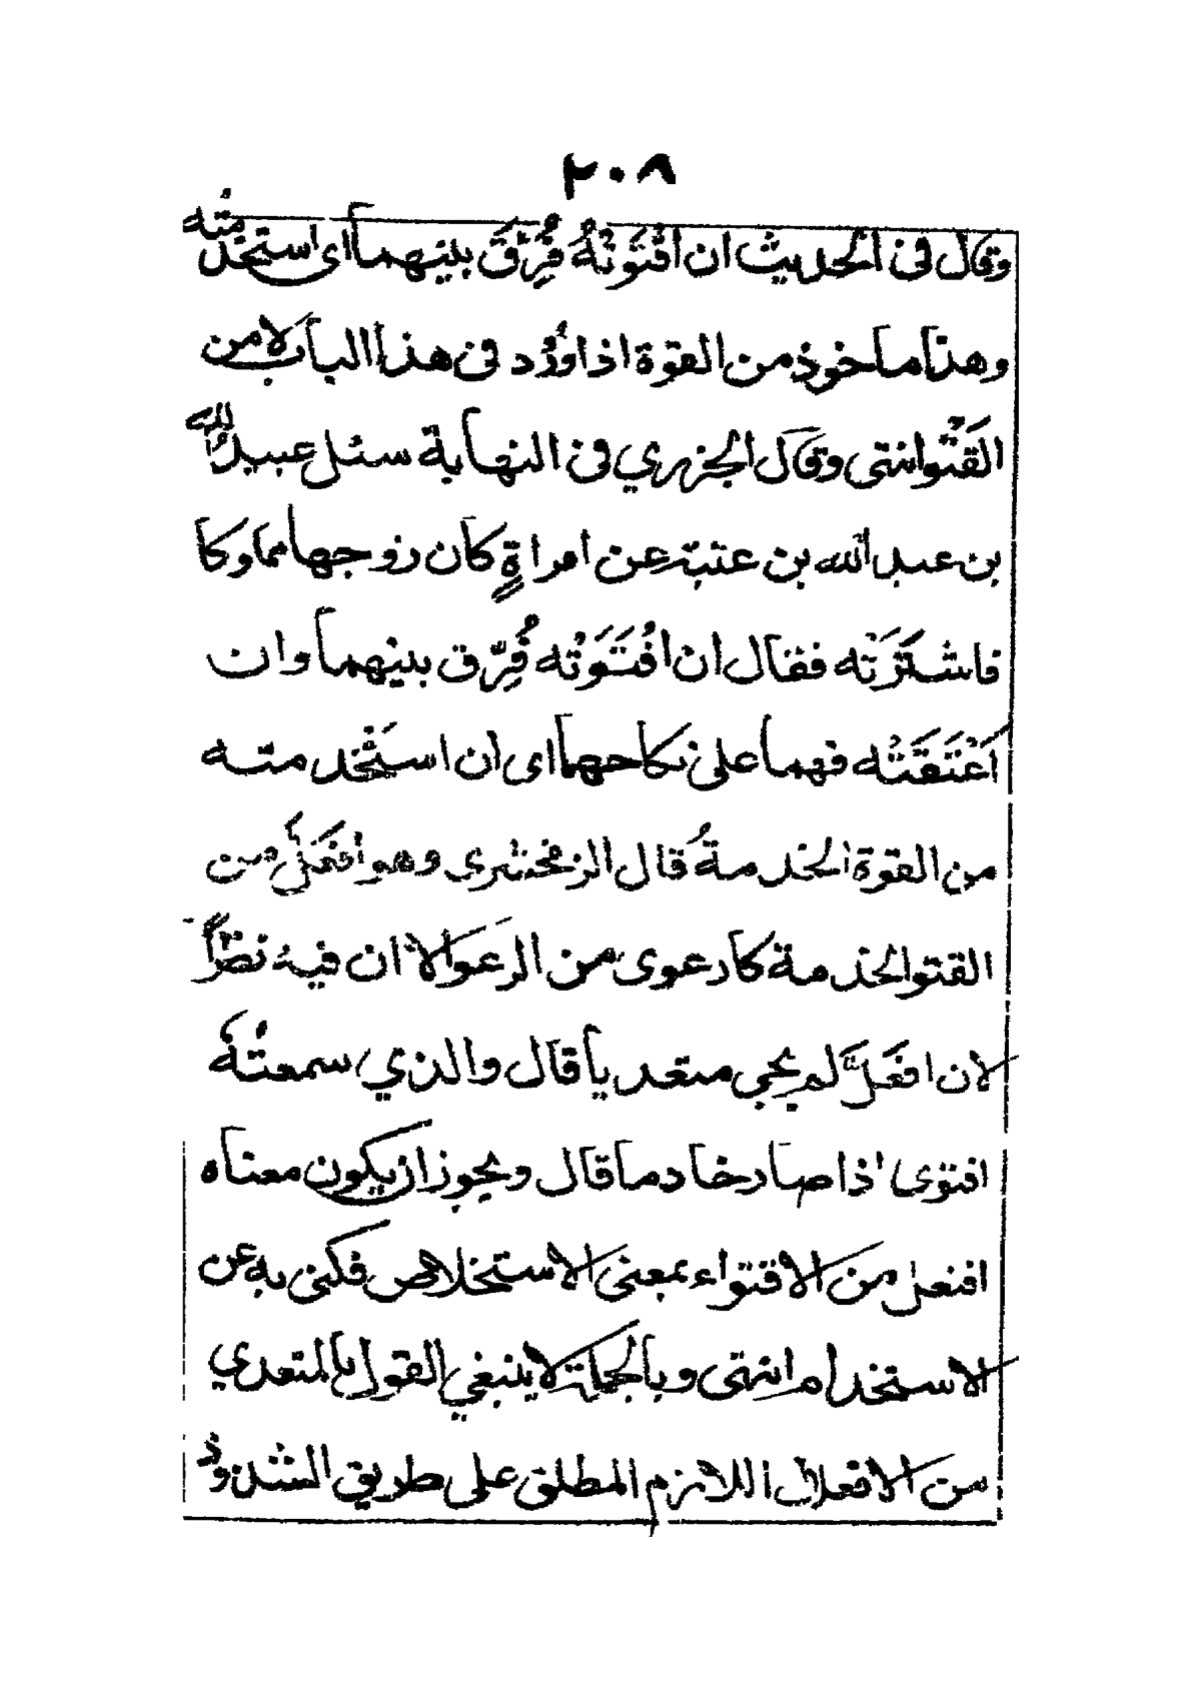 ٢٠٨
وقال فى الحديث ان اقْتَوَتْهُ فُرِّقَ بينهما اى استخدمته
وهذا ماخوذ من القوة اذا وُرد فى هذا الباب لا من
القَتْو انتهى وقال الجزري فى النهاية سئل عبيد اللّٰه
بن عبد اللّٰه بن عتبة عن امراةٍ كان زوجها مملوكا
فاشترَتْه فقال ان اقْتَوَتْه فُرِّق بينهما وان
اَعْتَقَتْه فهما على نكاحهما اى ان استَخْدمته
من القوة الخدمةُ قال الزمخشرى وهو افْعَلَّ من
القتو الخدمة كارعوى من الرعو الا ان فيه نظرًا
لان افعَلَّ لم يجى متعديا قال والذي سمعتُهُ
اقتوى اذا صار خادما قال ويجوز ان يكون معناه
افتعل من الاقتواء بمعنى الاستخلاص فكنى به عن
الاستخدام انتهى وبالجملة لا ينبغي القول بالمتعدي
من الافعلال اللازم المطلق على طريق الشذوذ